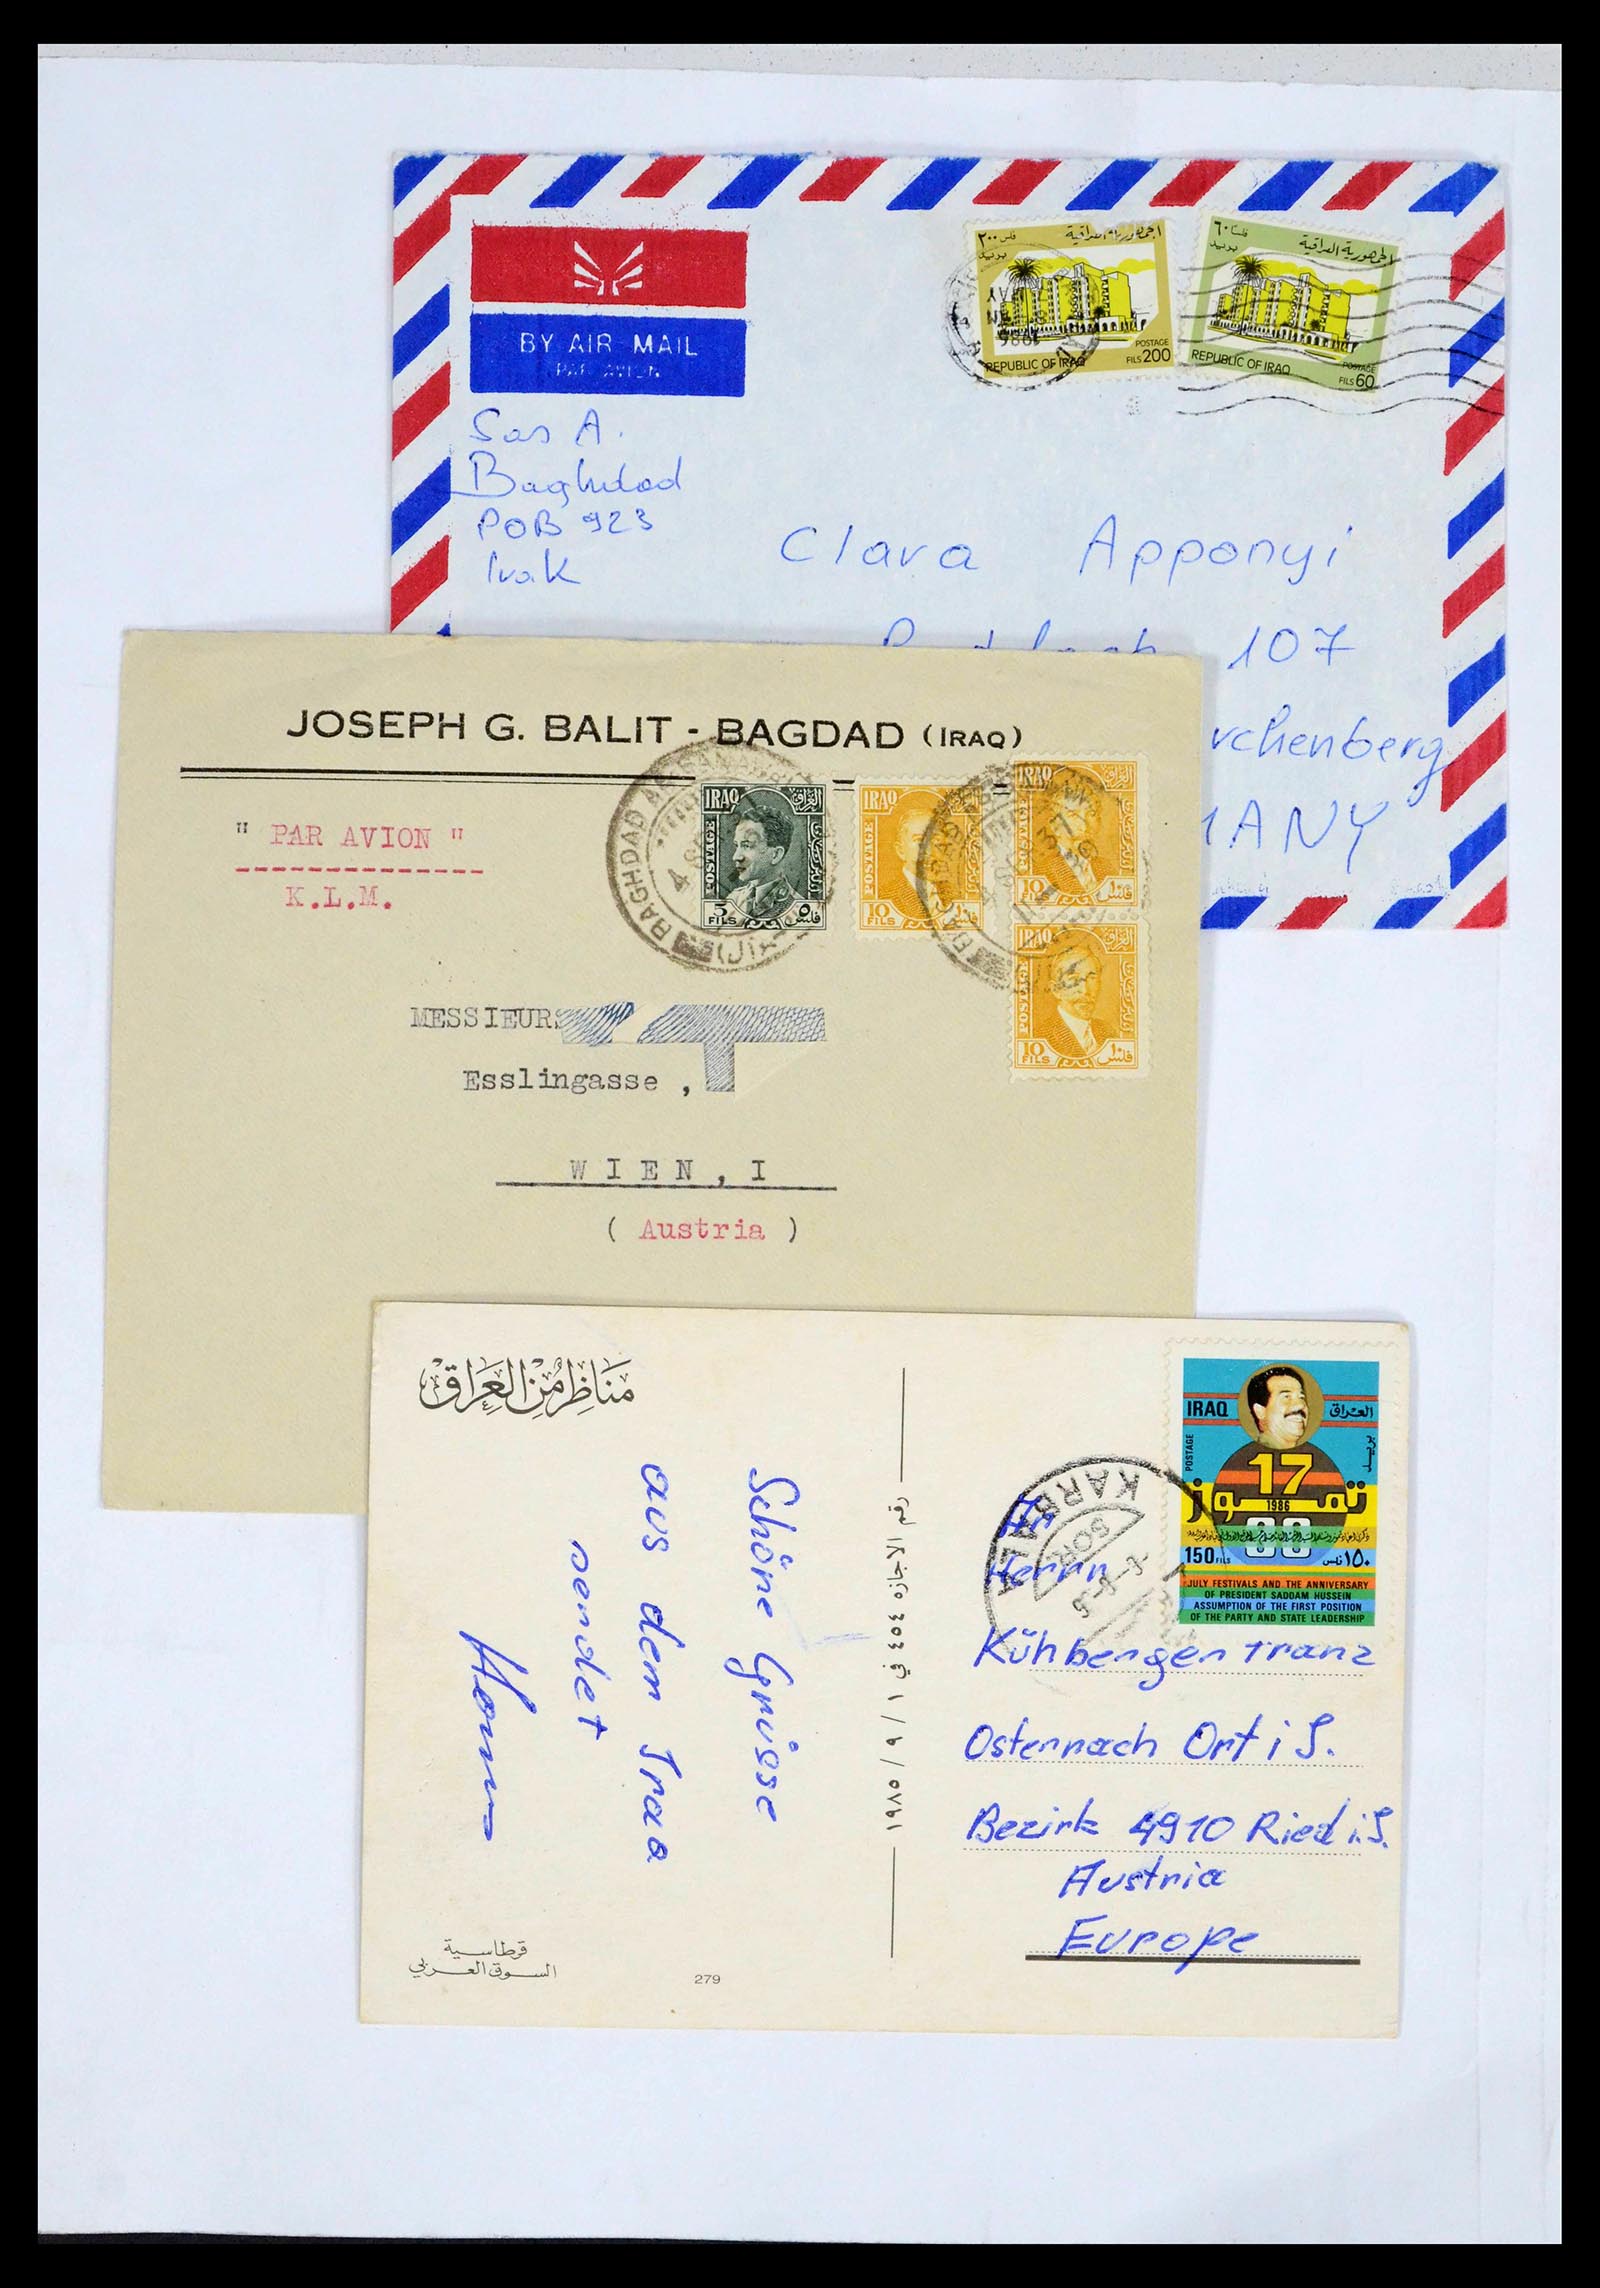 BY AIR MAIL
PAR AVION
Sas A.
Baghdad
POB 923
Irak
٢٠٠ فلس
الجمهورية العراقية
بريد
POSTAGE
FILS 200
REPUBLIC OF IRAQ
1986
٦٠ فلسا
الجمهورية العراقية
بريد
REPUBLIC OF IRAQ
POSTAGE
FILS 60
Clara Apponyi
107
rchenberg
MANY
JOSEPH G. BALIT - BAGDAD (IRAQ)
" PAR AVION "
K.L.M.
BAGHDAD
IRAQ العراق
POSTAGE
5 FILS ٥ فلس
IRAQ
POSTAGE
10 FILS ١٠
IRAQ العراق
POSTAGE
10 FILS ١٠ فلس
IRAQ العراق
POSTAGE
10 FILS ١٠ فلس
MESSIEURS
Esslingasse ,
WIEN, I
( Austria )
مناظر من العراق
Schöne Grüsse
aus dem Iraq
sendet
رقم الاجازه ٤٥٤ في ١ / ٩ / ١٩٨٥
قرطاسية
السوق العربي
279
KARBALA
IRAQ العراق
POSTAGE بريد
17
تموز
1986
150 FILS ١٥٠ فلس
JULY FESTIVALS AND THE ANNIVERSARY
OF PRESIDENT SADDAM HUSSEIN
ASSUMPTION OF THE FIRST POSITION
OF THE PARTY AND STATE LEADERSHIP
Herrn
Kühberger Franz
Osternach Ort i J.
Bezirk 4910 Ried i. J.
Austria
Europe